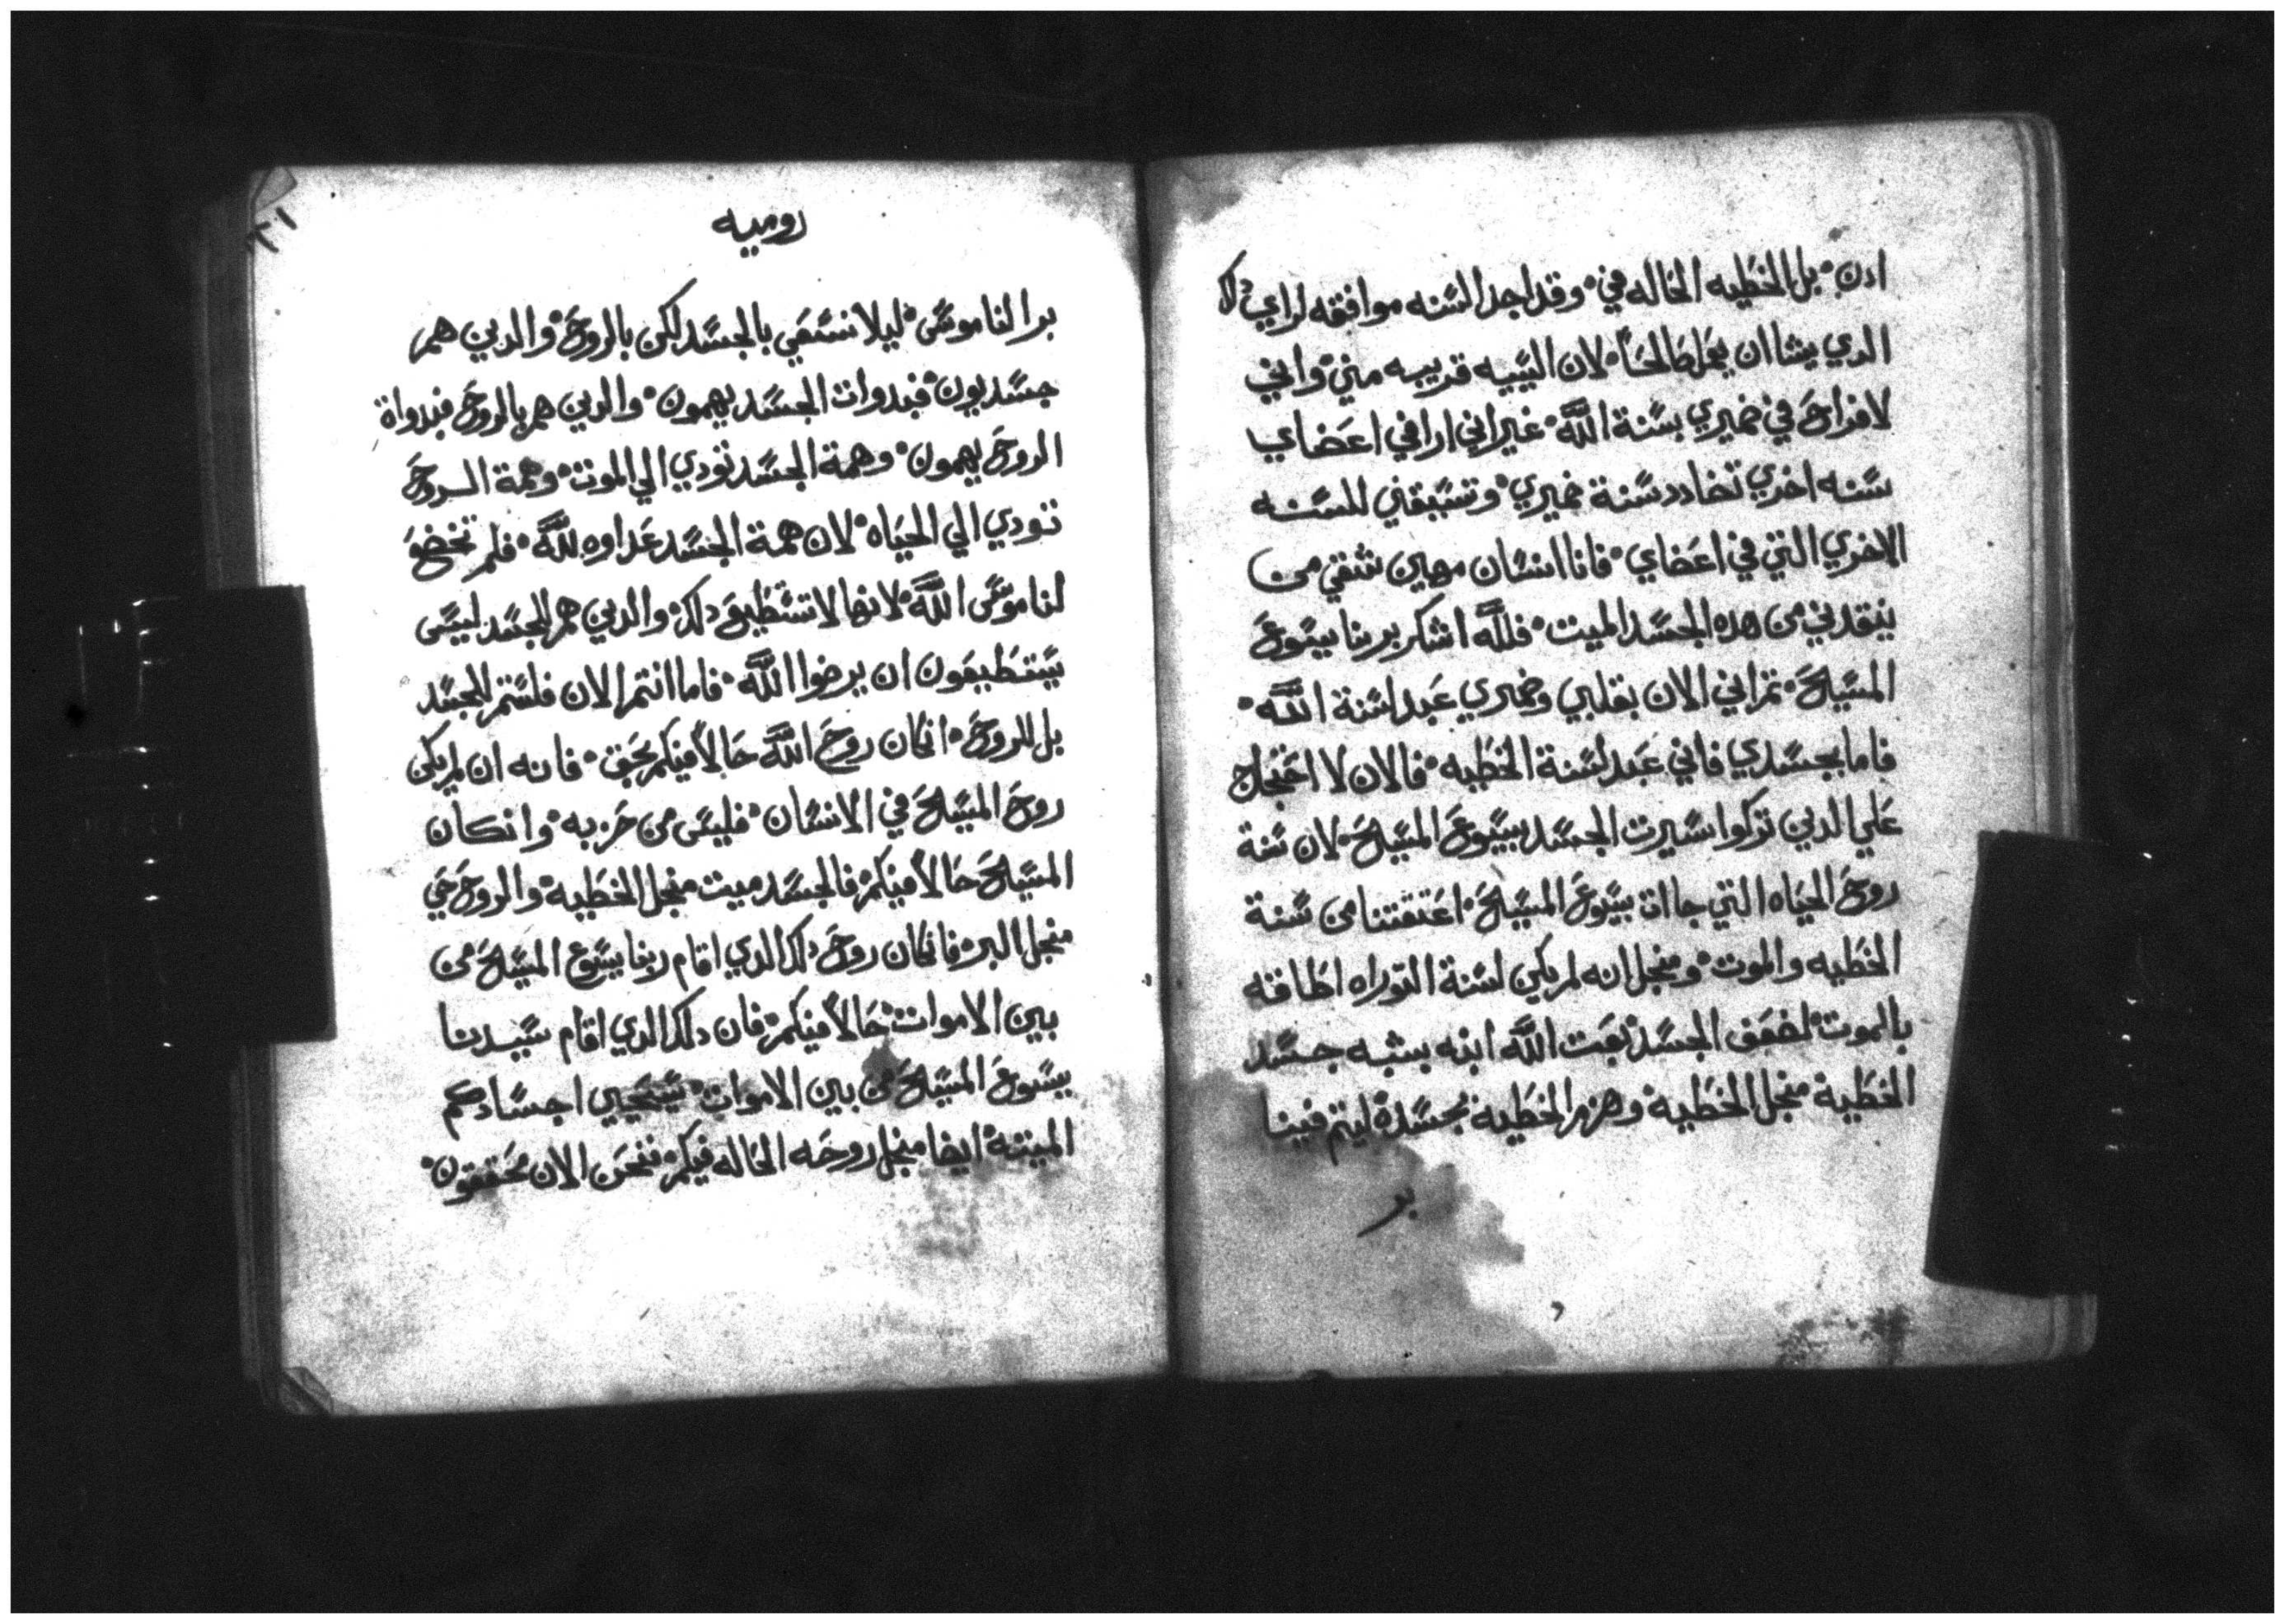 ادن ۰ بل الخطيه الحاله في ۰ وقد اجد السنه موافقه لراي دلك
الدي يشا ان يعمل الحا ۰ لان السييه قريبه مني ۰ واني
لافراح في ضميري بسنة الله ۰ غير اني ارا في اعضاي
سنه اخري تضادد سنة ضميري ۰ وتسبقني للسنه
الاخري التي في اعضاي ۰ فانا انسان مهين شقي من
ينقدني من هده الجسد الميت ۰ فلله اشكر بربنا يسوع
المسيح ۰ تراني الان بقلبي وضميري عبدا سنة الله ۰
فاما بجسدي فاني عبد لسنة الخطيه ۰ فالان لا احتجاج
علي الدين تركوا سيرت الجسد بيسوع المسيح ۰ لان سنة
روح الحياه التي جاات بيسوع المسيح ۰ اعتقتنا من سنة
الخطيه والموت ۰ ومنجل انه لم يكن لسنة التوراه اطاقه
بالموت لضعف الجسد ۰ بعت الله ابنه بشبه جسد
الخطية منجل الخطية ۰ وهزم الخطية بجسده ۰ ليتم فينا
بر
٢١
روميه
بر الناموس ۰ ليلا نسعي بالجسد لكن بالروح ۰ والدين هم
جسديون ۰ فبدوات الجسد يهمون ۰ والدين هم بالروح فبدواة
الروح يهمون ۰ وهمة الجسد تودي الي الموت ۰ وهمة الروح
تودي الي الحياه ۰ لان همة الجسد عداوه لله ۰ فلم تخضع
لناموس الله ۰ لانها لا تستطيع دلك ۰ والدين هم للجسد ليس
يستطيعون ان يرضوا الله ۰ فاما انتم الان فلستم للجسد
بل للروح ۰ انكان روح الله حالا فيكم بحق ۰ فانه ان لم يكن
روح المسيح في الانسان ۰ فليس من حزبه ۰ وانكان
المسيح حالا فيكم ۰ فالجسد ميت منجل الخطيه ۰ والروح حي
منجل البر ۰ فانكان روح دلك الدي اقام ربنا يسوع المسيح من
بين الاموات ۰ حالا فيكم ۰ فان دلك الدي اقام سيدنا
يسوع المسيح من بين الاموات ۰ سيحيي اجسادكم
الميته ۰ ايضا منجل روحه الحاله فيكم ۰ فنحن الان محققون ۰